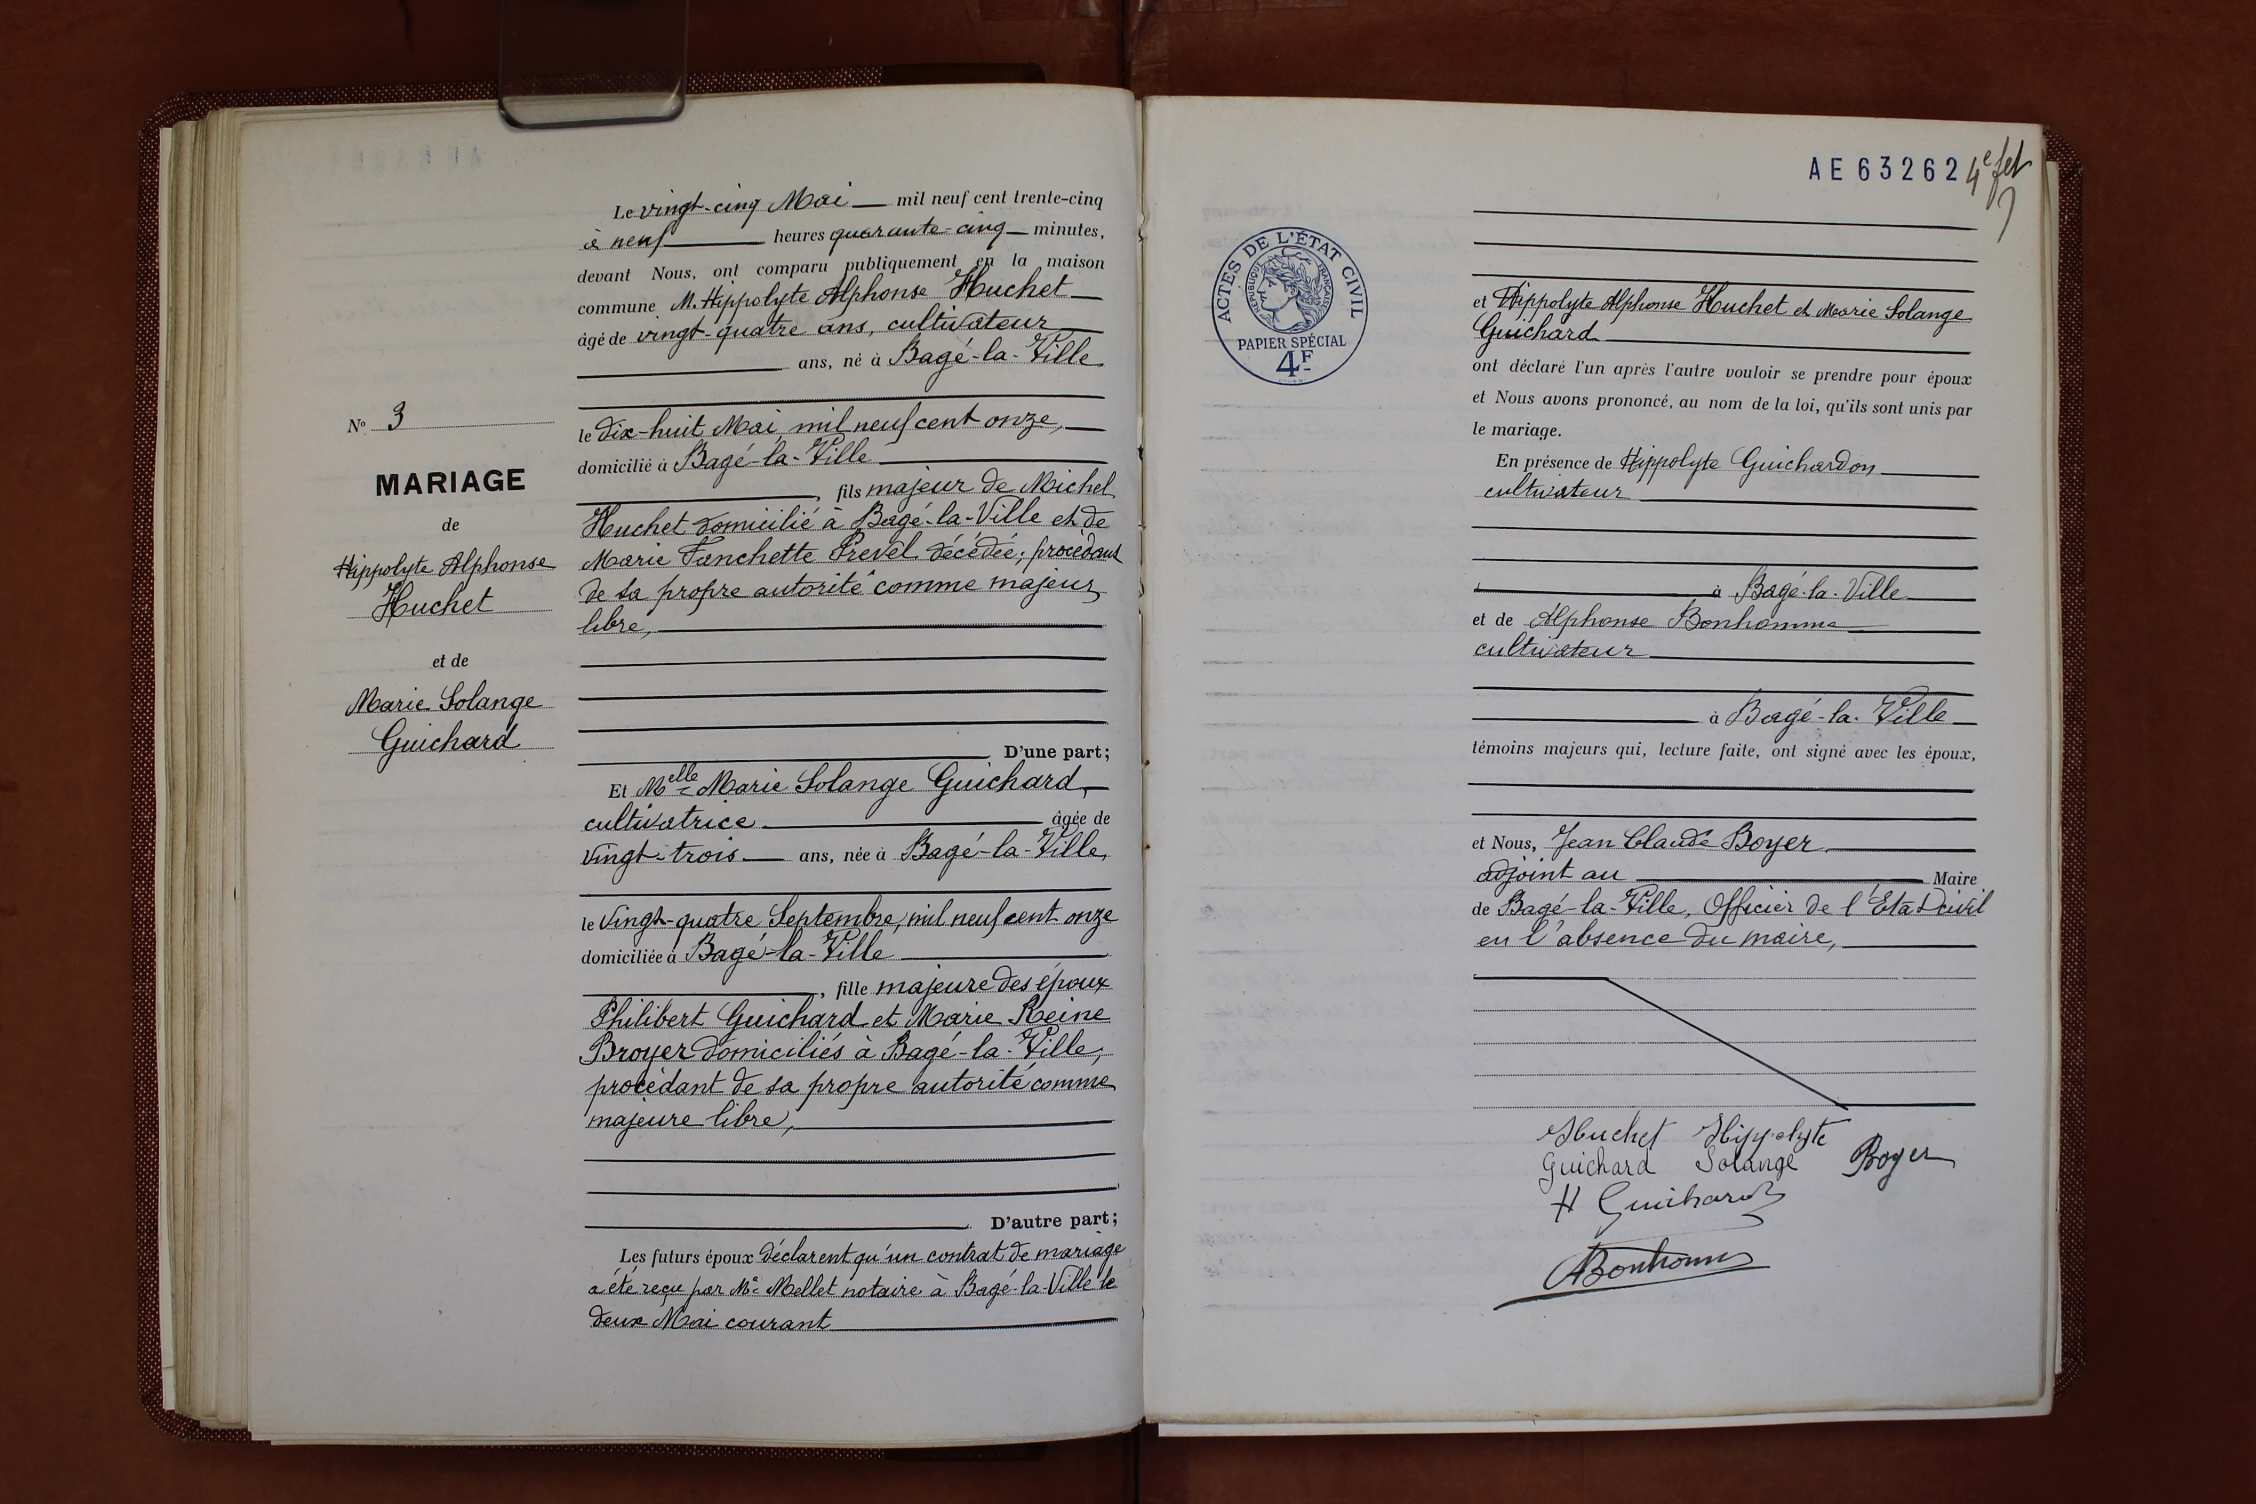 N° 3
MARIAGE
de
Hippolyte Alphonse
Huchet
et de
Marie Solange
Guichard
Le vingt-cinq Mai mil neuf cent trente-cinq
à neuf heures quarante-cinq minutes,
devant Nous, ont comparu publiquement en la maison
commune M. Hippolyte Alphonse Huchet
âgé de vingt-quatre ans, cultivateur
ans, né à Bagé-la-Ville
le dix-huit Mai mil neuf cent onze,
domicilié à Bagé-la-Ville
, fils majeur de Michel
Huchet domicilié à Bagé-la-Ville et de
Marie Fanchette Prevel décédée; procédant
de sa propre autorité comme majeur
libre,
D'une part;
Et Melle Marie Solange Guichard,
cultivatrice âgée de
vingt-trois ans, née à Bagé-la-Ville,
le vingt-quatre Septembre, mil neuf cent onze
domiciliée à Bagé-la-Ville
, fille majeure des époux
Philibert Guichard et Marie Reine
Broyer domiciliés à Bagé-la-Ville,
procédant de sa propre autorité comme
majeure libre,
D'autre part;
Les futurs époux déclarent qu'un contrat de mariage
a été reçu par Me Mellet notaire à Bagé-la-Ville le
deux Mai courant
AE 63262
4e fet
ACTES DE L'ÉTAT CIVIL
RÉPUBLIQUE FRANÇAISE
PAPIER SPÉCIAL
4F
et Hippolyte Alphonse Huchet et Marie Solange
Guichard
ont déclaré l'un après l'autre vouloir se prendre pour époux
et Nous avons prononcé, au nom de la loi, qu'ils sont unis par
le mariage.
En présence de Hippolyte Guichardon
cultivateur
à Bagé-la-Ville
et de Alphonse Bonhomme
cultivateur
à Bagé-la-Ville
témoins majeurs qui, lecture faite, ont signé avec les époux,
et Nous, Jean Claude Boyer
adjoint au Maire
de Bagé-la-Ville, Officier de l'Etat civil
en l'absence du maire,
Huchet Hippolyte
Guichard Solange Boyer
H Guichardon
ABonhomme